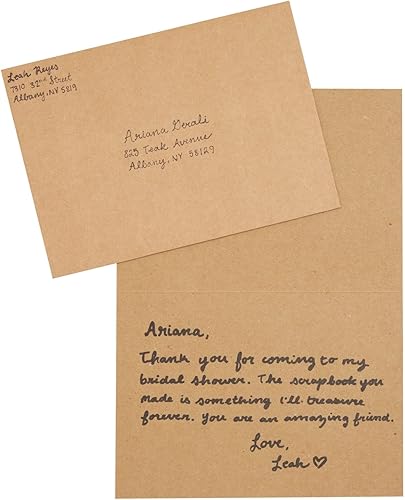 Leah Reyes
7810 32nd Street
Albany, NY 5819
Ariana Gerali
825 Teak Avenue
Albany, NY 58129
Ariana,
Thank you for coming to my
bridal shower. The scrapbook you
made is something I'll treasure
forever. You are an amazing friend.
Love,
Leah ♡